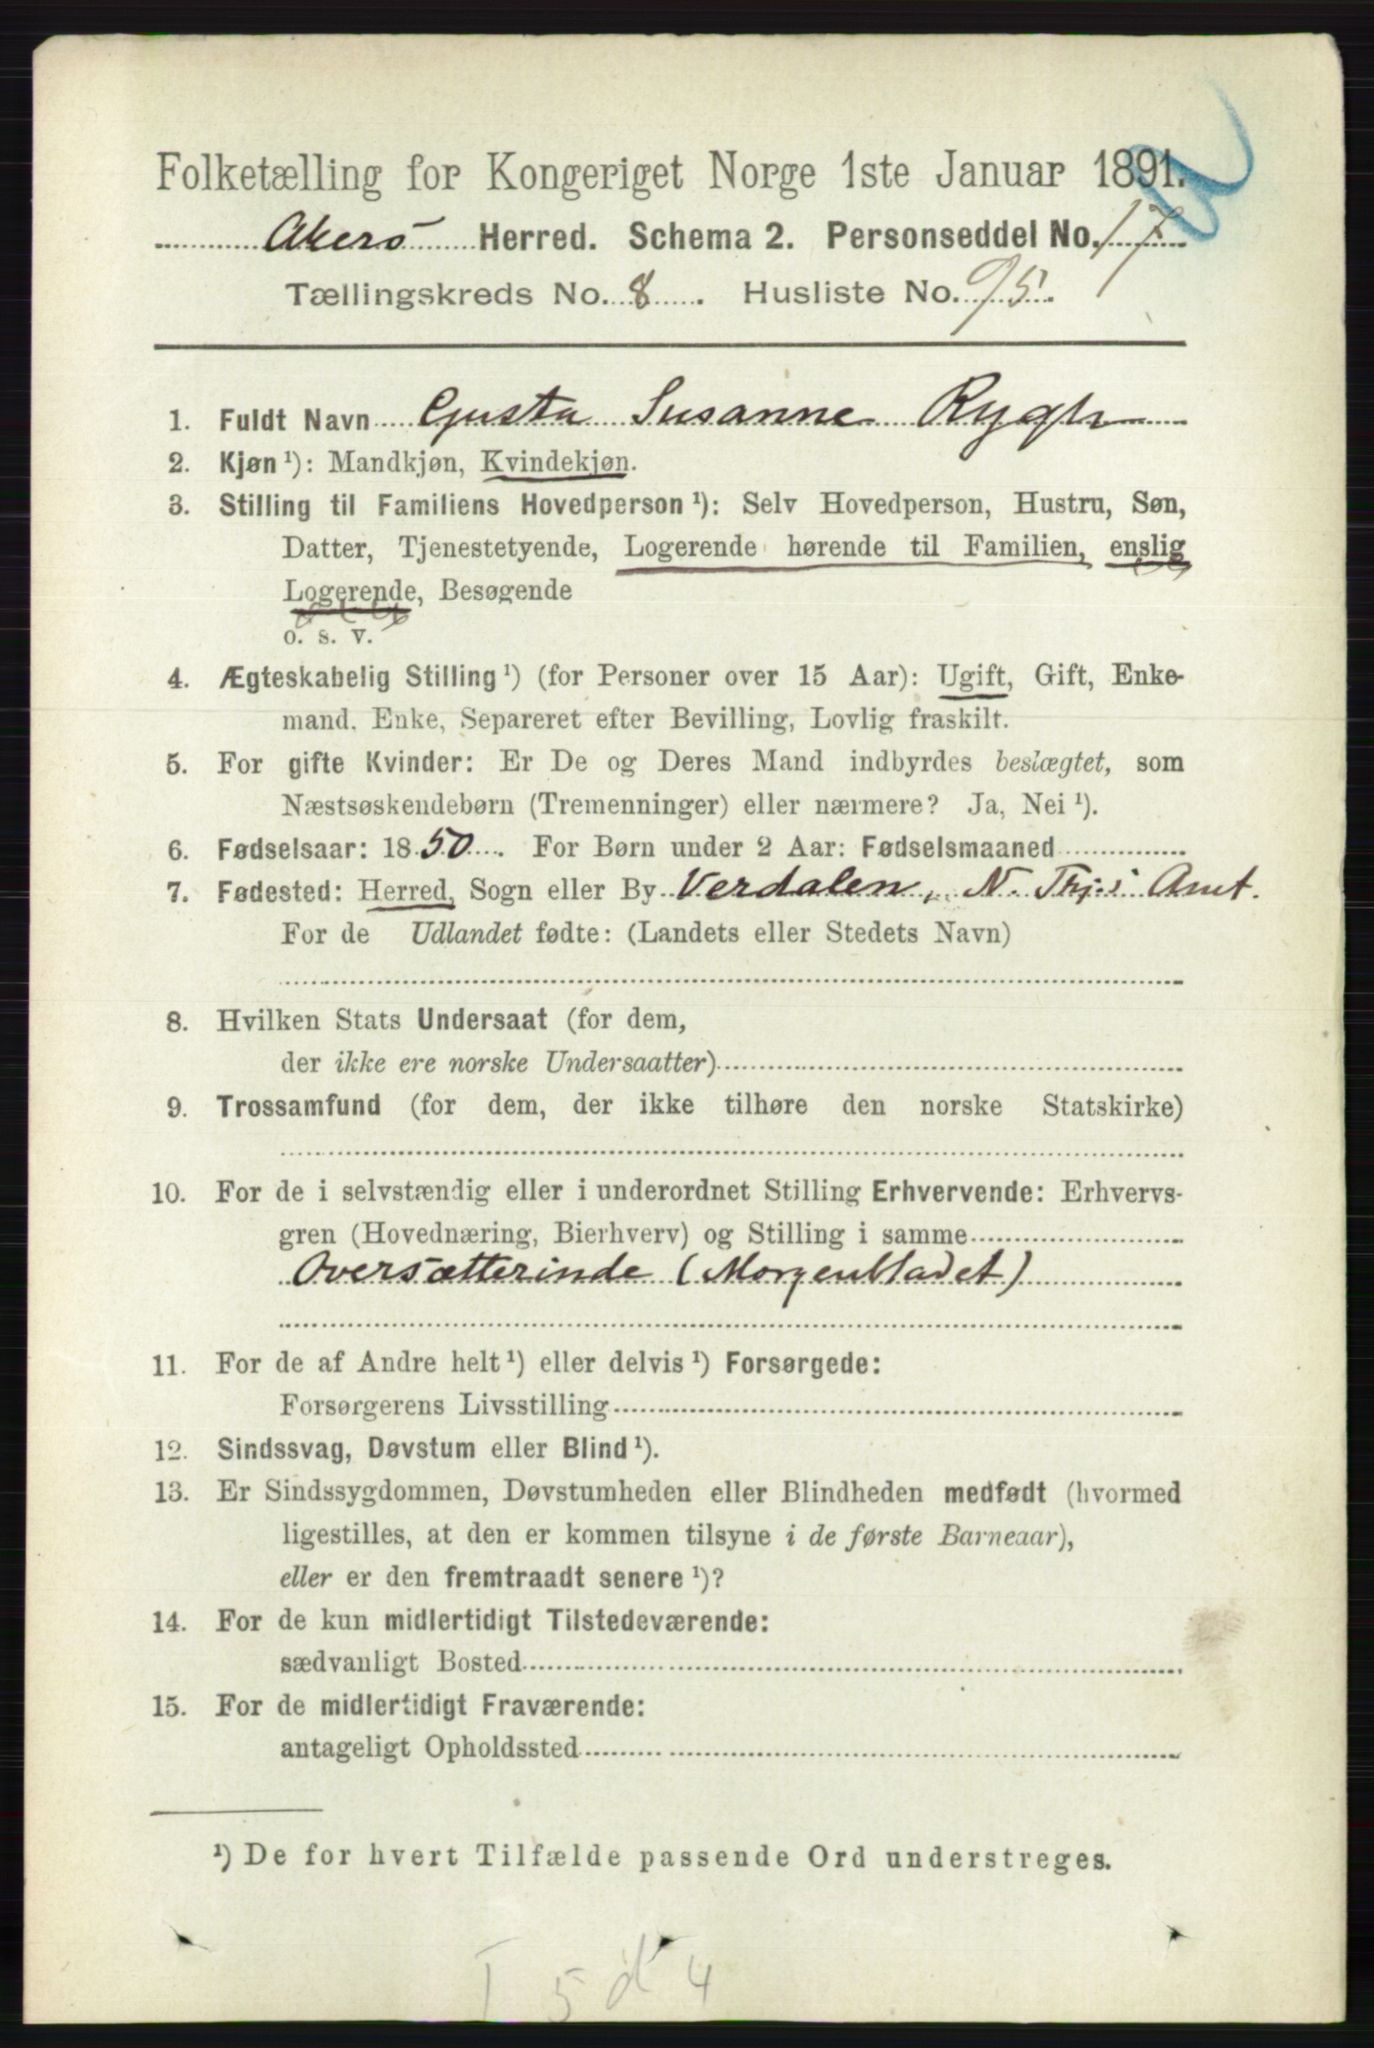 Folketælling for Kongeriget Norge 1ste Januar 1891.
Akers Herred. Schema 2. Personseddel No. 17
Tællingskreds No. 8. Husliste No. 95.
1. Fuldt Navn Gusta Susanne Rygh
2. Kjøn ¹): Mandkjøn, Kvindekjøn.
3. Stilling til Familiens Hovedperson ¹): Selv Hovedperson, Hustru, Søn,
Datter, Tjenestetyende, Logerende hørende til Familien, enslig
Logerende, Besøgende
o. s. v.
4. Ægteskabelig Stilling ¹) (for Personer over 15 Aar): Ugift, Gift, Enke-
mand, Enke, Separeret efter Bevilling, Lovlig fraskilt.
5. For gifte Kvinder: Er De og Deres Mand indbyrdes beslægtet, som
Næstsøskendebørn (Tremenninger) eller nærmere? Ja, Nei ¹).
6. Fødselsaar: 1850. For Børn under 2 Aar: Fødselsmaaned
7. Fødested: Herred, Sogn eller By Verdalen, N. Thj.s Amt.
For de Udlandet fødte: (Landets eller Stedets Navn)
8. Hvilken Stats Undersaat (for dem,
der ikke ere norske Undersaatter)
9. Trossamfund (for dem, der ikke tilhøre den norske Statskirke)
10. For de i selvstændig eller i underordnet Stilling Erhvervende: Erhvervs-
gren (Hovednæring, Bierhverv) og Stilling i samme
Oversætterinde (Morgenbladet)
11. For de af Andre helt ¹) eller delvis ¹) Forsørgede:
Forsørgerens Livsstilling
12. Sindssvag, Døvstum eller Blind ¹).
13. Er Sindssygdommen, Døvstumheden eller Blindheden medfødt (hvormed
ligestilles, at den er kommen tilsyne i de første Barneaar),
eller er den fremtraadt senere ¹)?
14. For de kun midlertidigt Tilstedeværende:
sædvanligt Bosted
15. For de midlertidigt Fraværende:
antageligt Opholdssted
¹) De for hvert Tilfælde passende Ord understreges.
I 5 d 4